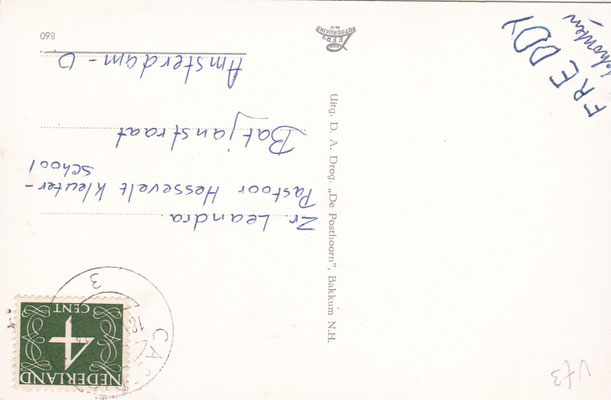 FREDDY
Zr. Leandra.
Pastoor Hessevelt Kleuter-
school
Batjanstraat
Amsterdam-O.
860
Uitg. D. A. Drog. „De Posthoorn”, Bakkum N.H.
NEDERLAND
4
CENT
CAS
3